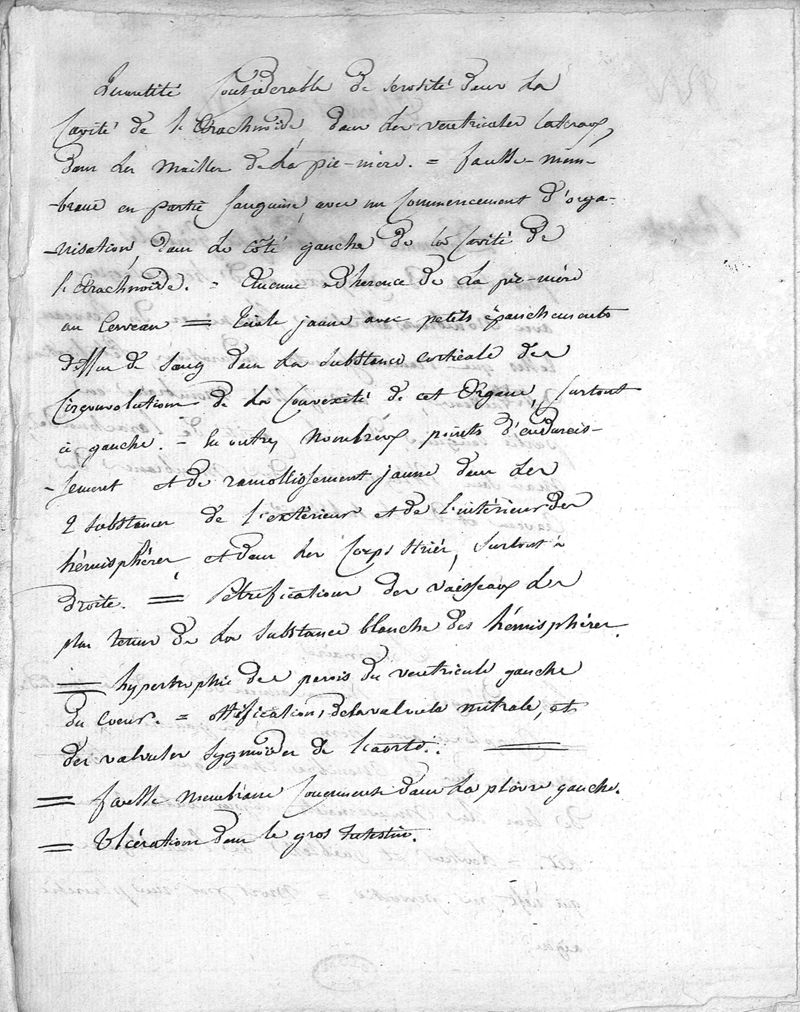 Quantité Considérable de Serosité dans La
Cavité de l'Arachnoïde dans Les ventricules lateraux,
dans Les Mailles de La pie-mère. = fausse-mem-
-brane en partie Sanguine, avec un Commencement d'orga-
-nisation, dans Le côté gauche de La Cavité de
l'Arachnoïde. - Aucune adherence de La pie-mère
au Cerveau = teinte jaune avec petits épanchements
diffus de Sang dans La Substance corticale des
Circonvolutions de La Convexité de cet Organe, Surtout
à gauche. - En outre, Nombreux points d'endurcis-
-sement et de ramollissement jaune dans Les
2 Substances de l'extérieur et de l'intérieur des
hémisphéres et dans Les Corps Striés, Surtout à
droite. = Pétrifications des vaisseaux Les
plus tenus de La Substance blanche des hémisphéres.
= hypertrophie des parois du ventricule gauche
du Coeur. = ossifications, de la valvule mitrale, et
des valvules Sygmoïdes de l'aorte. =
= fausse Membrane Couenneuse dans La plèvre gauche.
= Ulcération dans le gros Intestin.